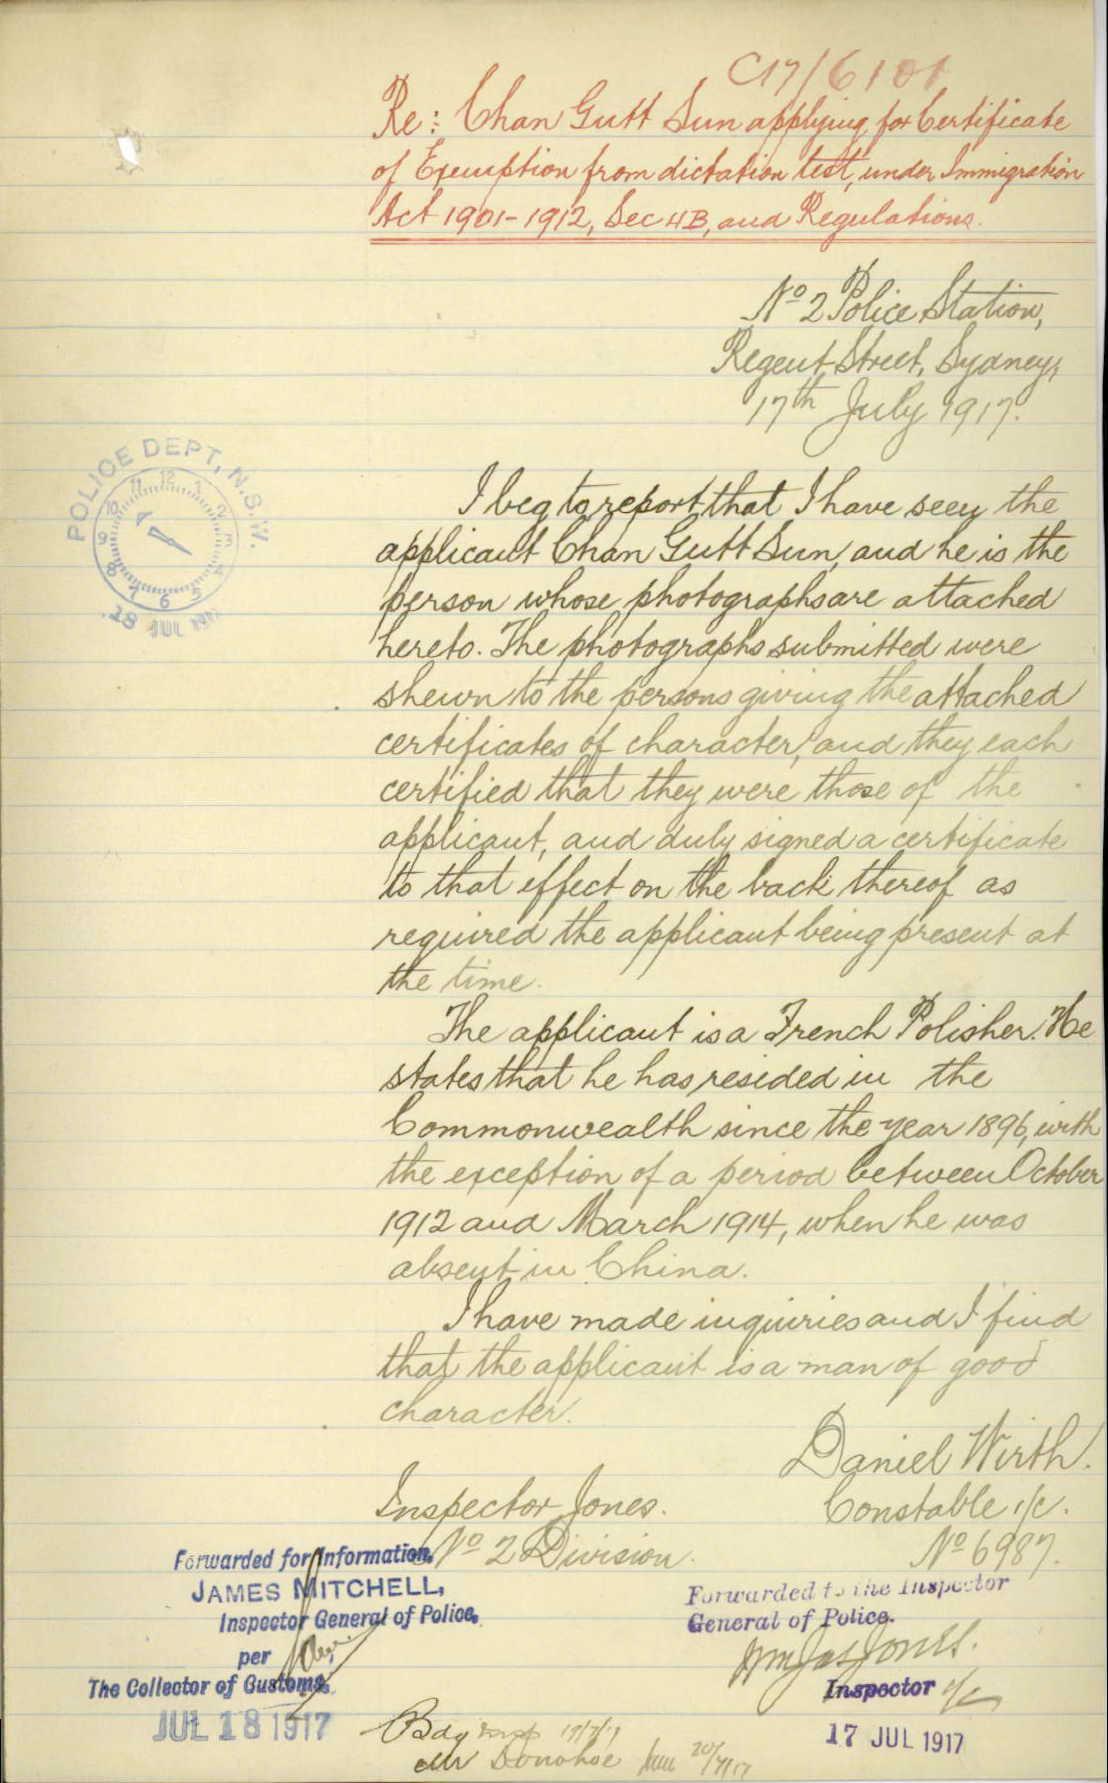 C17/6101
Re: Chan Gutt Sun applying for Certificate
of Exemption from dictation test, under Immigration
Act 1901-1912, Sec 4B, and Regulations.
No 2 Police Station,
Regent Street, Sydney,
17th July 1917.
POLICE DEPT, N.S.W.
12
1
2
3
4
5
6
7
8
9
10
11
18 JUL
I beg to report that I have seen the
applicant Chan Gutt Sun, and he is the
person whose photographs are attached
hereto. The photographs submitted were
shewn to the persons giving the attached
certificates of character, and they each
certified that they were those of the
applicant, and duly signed a certificate
to that effect on the back thereof as
required the applicant being present at
the time.
The applicant is a French Polisher. He
states that he has resided in the
Commonwealth since the year 1896, with
the exception of a period between October
1912 and March 1914, when he was
absent in China.
I have made inquiries and I find
that the applicant is a man of good
character.
Daniel Wirth.
Constable 1/c.
No 6987.
Inspector Jones.
No 2 Division.
Forwarded for Information.
JAMES MITCHELL,
Inspector General of Police.
per
The Collector of Customs.
JUL 18 1917
Forwarded to the Inspector
General of Police.
Wm Jas Jones.
Inspector
17 JUL 1917
17/7/17
Mr Donohoe 20/7/17